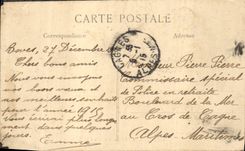 CARTE POSTALE
Correspondance
Boves, 27 Décembre
Chers bons amis
Nous vous envoyons
nos bons vœux et
nos meilleurs souhaits
pour l'année 1915
Vous écrirai plus longue-
ment dans quelques
jours.
CAGNES
Monsieur Pierre Pierre
Commissaire spécial
de Police en retraite
Boulevard de la Mer
au Cros de Cagne
Alpes Maritimes